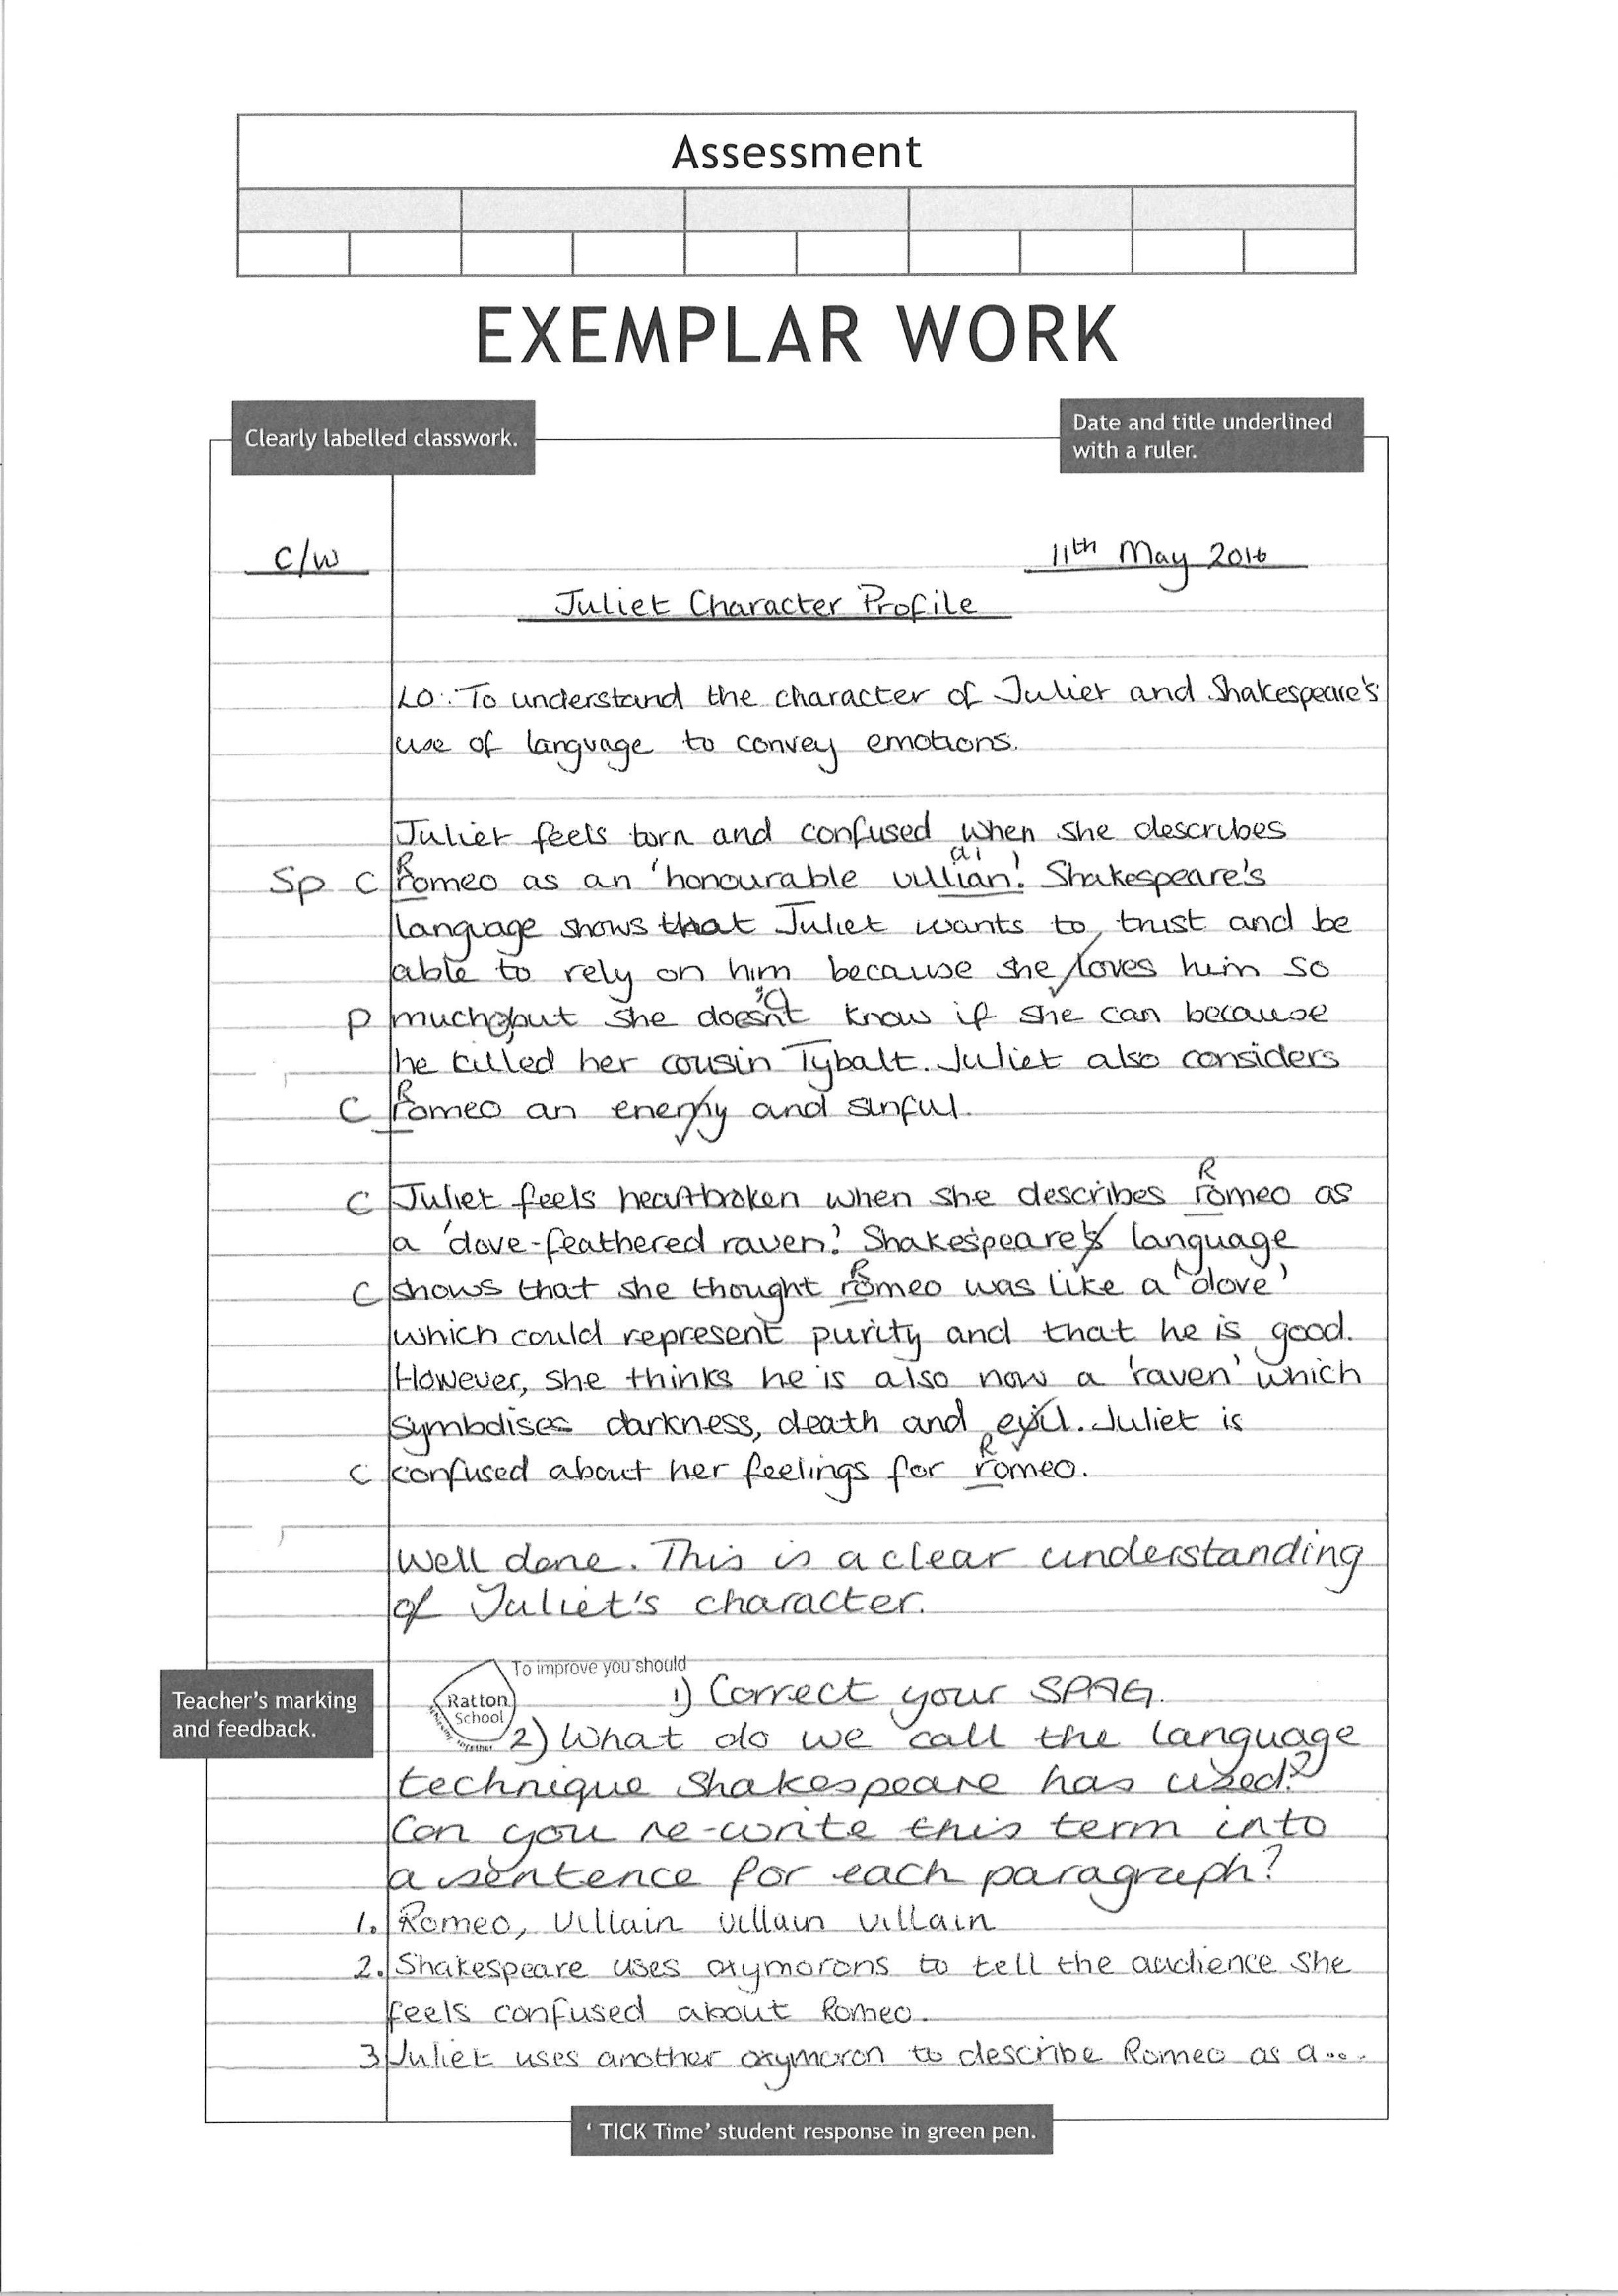 Assessment
EXEMPLAR WORK
Clearly labelled classwork.
Date and title underlined
with a ruler.
C/W
11th May 2016
Juliet Character Profile
LO: To understand the character of Juliet and Shakespeare's
use of language to convey emotions.
Juliet feels torn and confused when she describes
ai
Sp C romeo as an 'honourable villian'. Shakespeare's
R
language shows that Juliet wants to trust and be
able to rely on him because she loves him so
P much, but she does'nt know if she can because
he killed her cousin Tybalt. Juliet also considers
R
C romeo an enemy and sinful.
R
C Juliet feels heartbroken when she describes romeo as
a 'dove-feathered raven'. Shakespeare's language
R
C shows that she thought romeo was like a 'dove'
which could represent purity and that he is good.
However, she thinks he is also now a 'raven' which
symbolises darkness, death and evil. Juliet is
R
C confused about her feelings for romeo.
Well done. This is a clear understanding
of Juliet's character.
Teacher's marking
and feedback.
To improve you should
Ratton
School
1) Correct your SPAG.
2) What do we call the language
technique Shakespeare has used?
Can you re-write this term into
a sentence for each paragraph?
1. Romeo, Villain villain villain
2. Shakespeare uses oxymorons to tell the audience she
feels confused about Romeo.
3 Juliet uses another oxymoron to describe Romeo as a...
' TICK Time' student response in green pen.